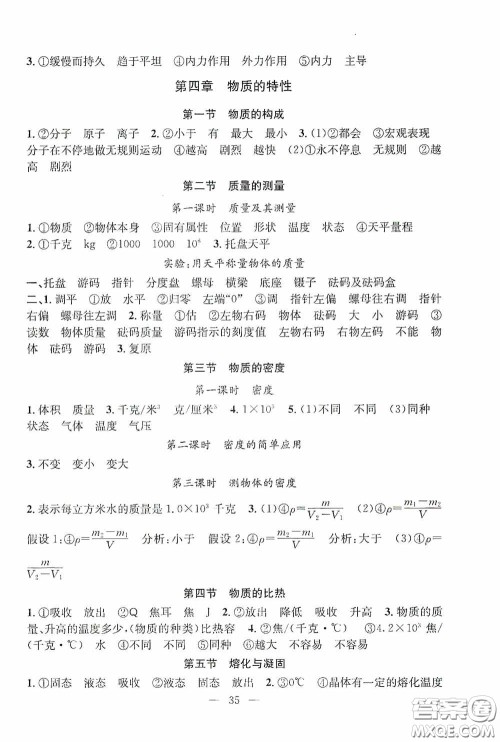 3.①缓慢而持久　趋于平坦　④内力作用　外力作用　⑤内力　主导
第四章　物质的特性
第一节　物质的构成
1.②分子　原子　离子　2.②小于　有　最大　最小　3.(1)②都会　③宏观表现
分子在不停地做无规则运动　④越高　剧烈　越快　(2)①永不停息　无规则　②越
高　剧烈
第二节　质量的测量
第一课时　质量及其测量
1.①物质　②物体本身　③固有属性　位置　形状　温度　状态　④天平量程
2.①千克　kg　②1000　1000　10⁶　3.托盘天平
实验:用天平称量物体的质量
一、托盘　游码　指针　分度盘　螺母　横梁　底座　镊子　砝码及砝码盒
二、1.调平　①放　水平　②归零　左端“0”　③指针左偏　螺母往右调　指针
右偏　螺母往左调　2.称量　①估　②左物右码　物体　砝码　大　小　游码　③
读数　物体质量　砝码质量　游码指示的刻度值　左物右码　右物左码　不能　物
体　砝码　游码　3.复原
第三节　物质的密度
第一课时　密度
1.体积　质量　3.千克/米³　克/厘米³　4.1×10³　5.(1)不同　不同　(3)同种
状态　气体　温度　气压
第二课时　密度的简单应用
3.不变　变小　变大
第三课时　测物体的密度
2.表示每立方米水的质量是1.0×10³千克　3.(1)④ρ=m/(V₂−V₁)　(2)④ρ=(m₂−m₁)/V
假设1:④ρ=(m₂−m₁)/V　分析:小于　假设2:④ρ=(m₂−m₁)/V　分析:大于　(3)④ρ=
m/(V₂−V₁)
第四节　物质的比热
1.①吸收　放出　②Q　焦耳　J　2.①放出　降低　吸收　升高　3.①物质的质
量、升高的温度多少、(物质的种类)比热容　②焦/(千克·℃)　③4.2×10³焦/
(千克·℃)　④大　多　越大　不容易　不容易
第五节　熔化与凝固
1.①固态　液态　吸收　②液态　固态　放出　2.③0℃　④晶体有一定的熔化温度
35